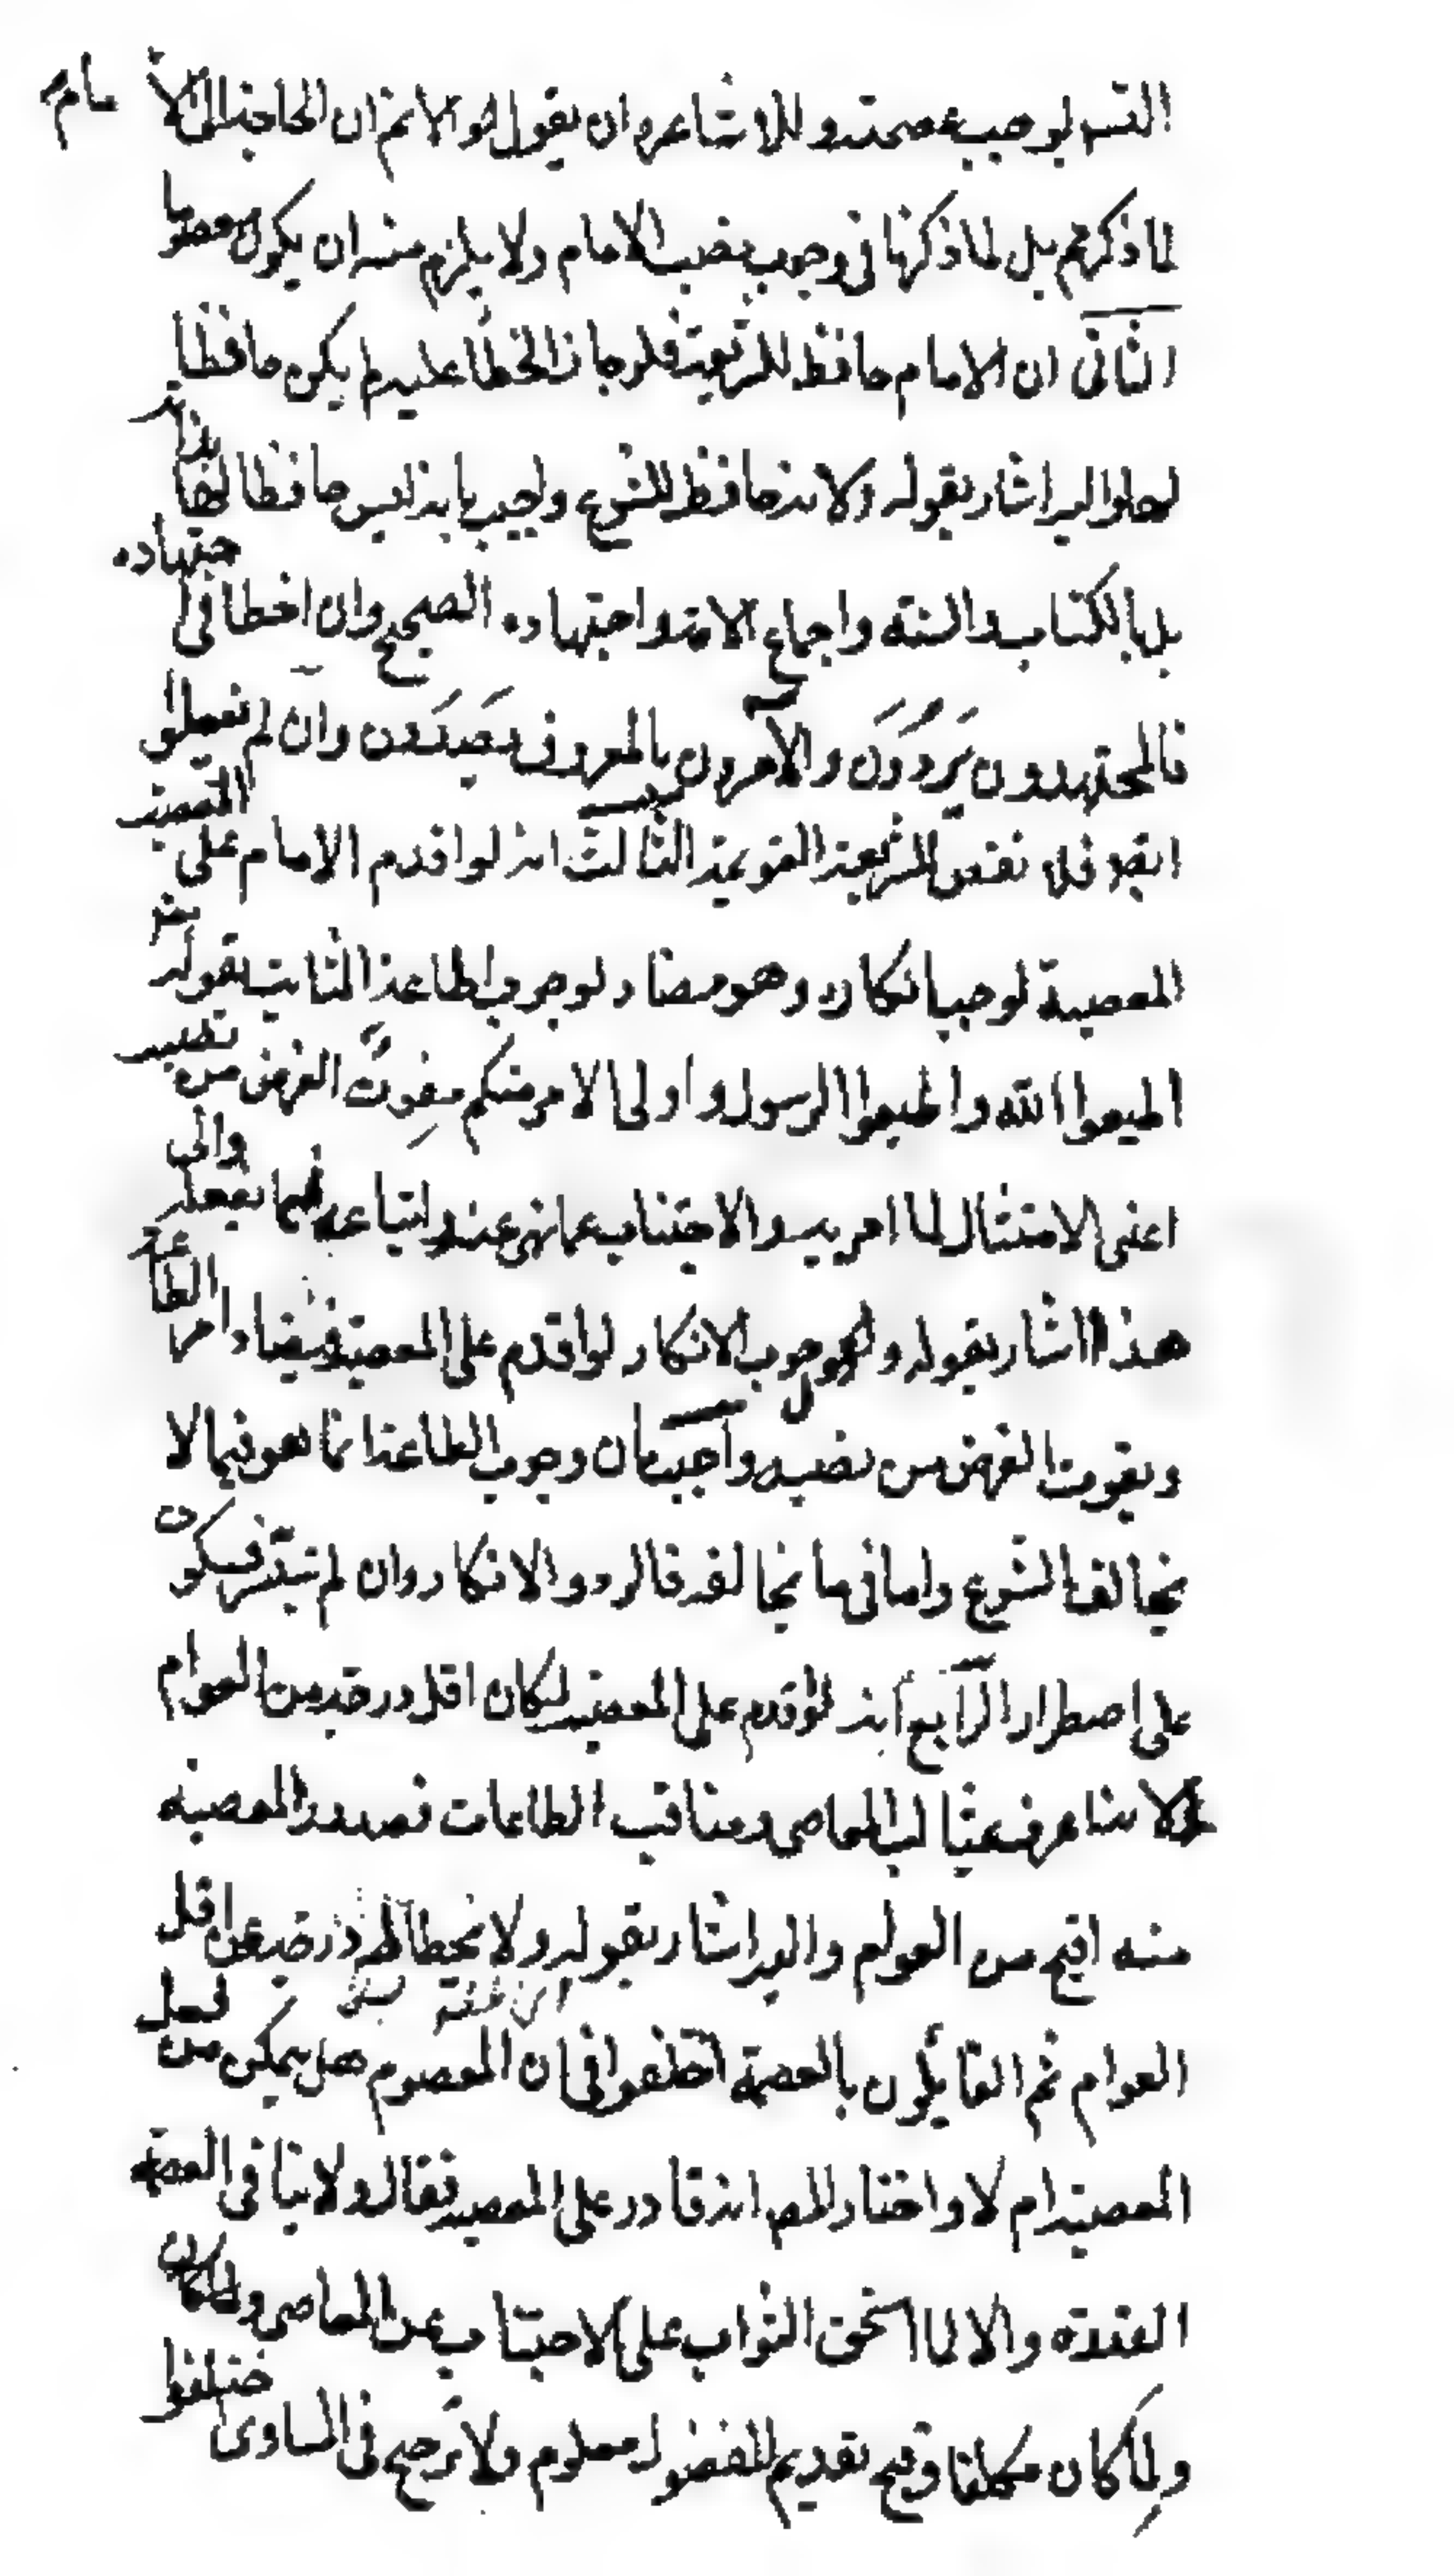 التسلسل لوجب عصمته وللاشاعرة ان يقول هو الانم ان الحاجة الى الامام
لما ذكرتم بل لما ذكرنا فى وجوب نصب الامام ولا يلزم منه ان يكون معصوما
الثانى ان الامام حافظ للشريعة فلو جاز الخطأ عليه لم يكن حافظا
لها واليه اشار بقوله ولانه حافظ للشرع واجيب بانه ليس حافظا لها بذاته
بل بالكتاب والسنة واجماع الامة واجتهاده الصحيح وان اخطا فى اجتهاده
فالمجتهدون يردون والآمرون بالمعروف يصدون وان لم يفعلوا
ايضا فلا نقص للشريعة القويمة الثالث انه لو اقدم الامام على المعصية
المعصية لوجب انكاره وهو مضاد لوجوب اطاعة الثابت بقوله تعالى
اطيعوا الله واطيعوا الرسول واولى الامر منكم مفوت الغرض من نصبه
اعنى الامتثال لما امر به والاجتناب عما نهى عنه واتباعه فيما يفعله والى
هذا اشار بقوله ولوجوب الانكار لو اقدم على المعصية فيضاد امر الطاعة
ويفوت الغرض من نصبه واجيب بان وجوب الطاعة انما هو فيما لا
يخالف الشرع واما فيما يخالفه فالرد والانكار وان لم تيسر فسكوت
على اضطرار الرابع انه لو اقدم على المعصية لكان اقل درجة من العوام
لانه اعرف بمثالب المعاصى ومناقب الطاعات فصدور المعصية
منه اقبح من العوام واليه اشار بقوله ولانحطاط درجته عن اقل
العوام ثم القايلون بالعصمة اختلفوا فى ان المعصوم هل يمكن من فعل
المعصية ام لا واختار المص انه قادر على المعصية فقال ولا ينافى العصمة
القدرة والا لما استحق الثواب على الاجتناب عن المعاصى ولما كان
ولما كان مكلفا وقبح تقديم المفضول معلوم ولا ترجيح فى المساوى اختلفوا